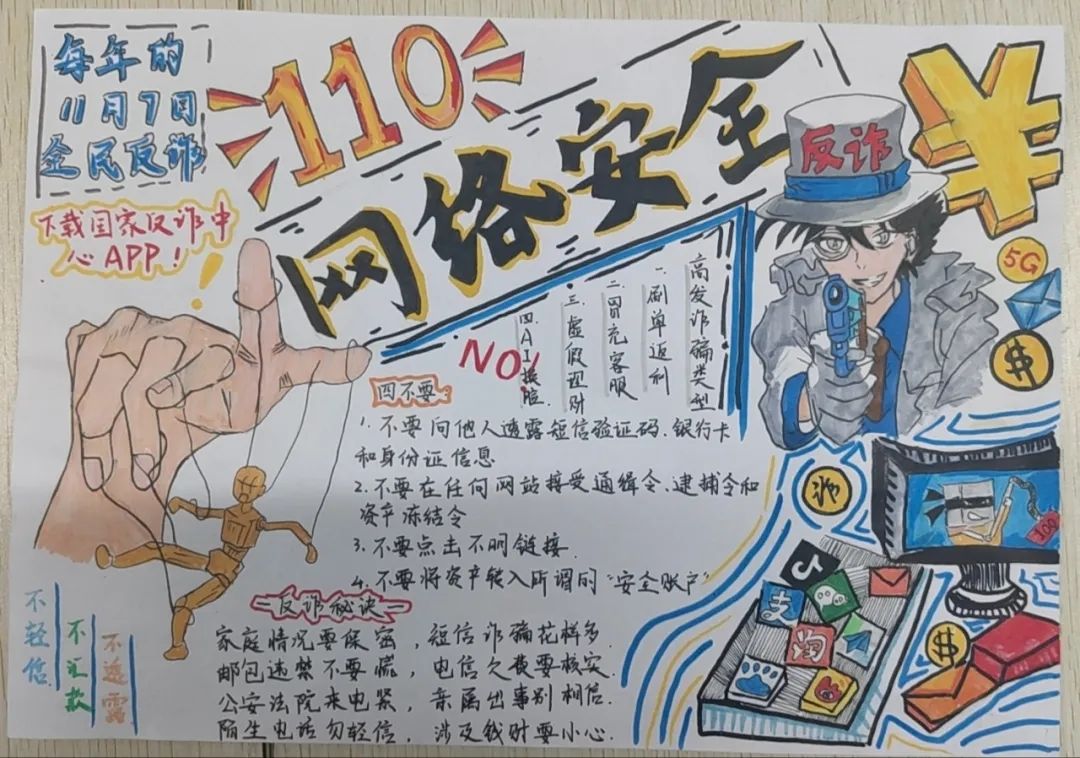 每年的
11月7日
全民反诈
110
网络安全
反诈
下载国家反诈中
心APP！
5G
高发诈骗类型
一.刷单返利
二.冒充客服
三.虚假理财
四.AI换脸
NO!
四不要:
1.不要向他人透露短信验证码.银行卡
和身份证信息
2.不要在任何网站接受通缉令、逮捕令和
资产冻结令
3.不要点击不明链接.
4.不要将资产转入所谓的"安全账户"
反诈秘诀
家庭情况要保密，短信诈骗花样多.
邮包违禁不要慌，电信欠费要核实.
公安法院来电紧，亲属出事别相信.
陌生电话勿轻信，涉及钱财要小心.
不轻信
不汇款
不透露
诈
100
支
淘